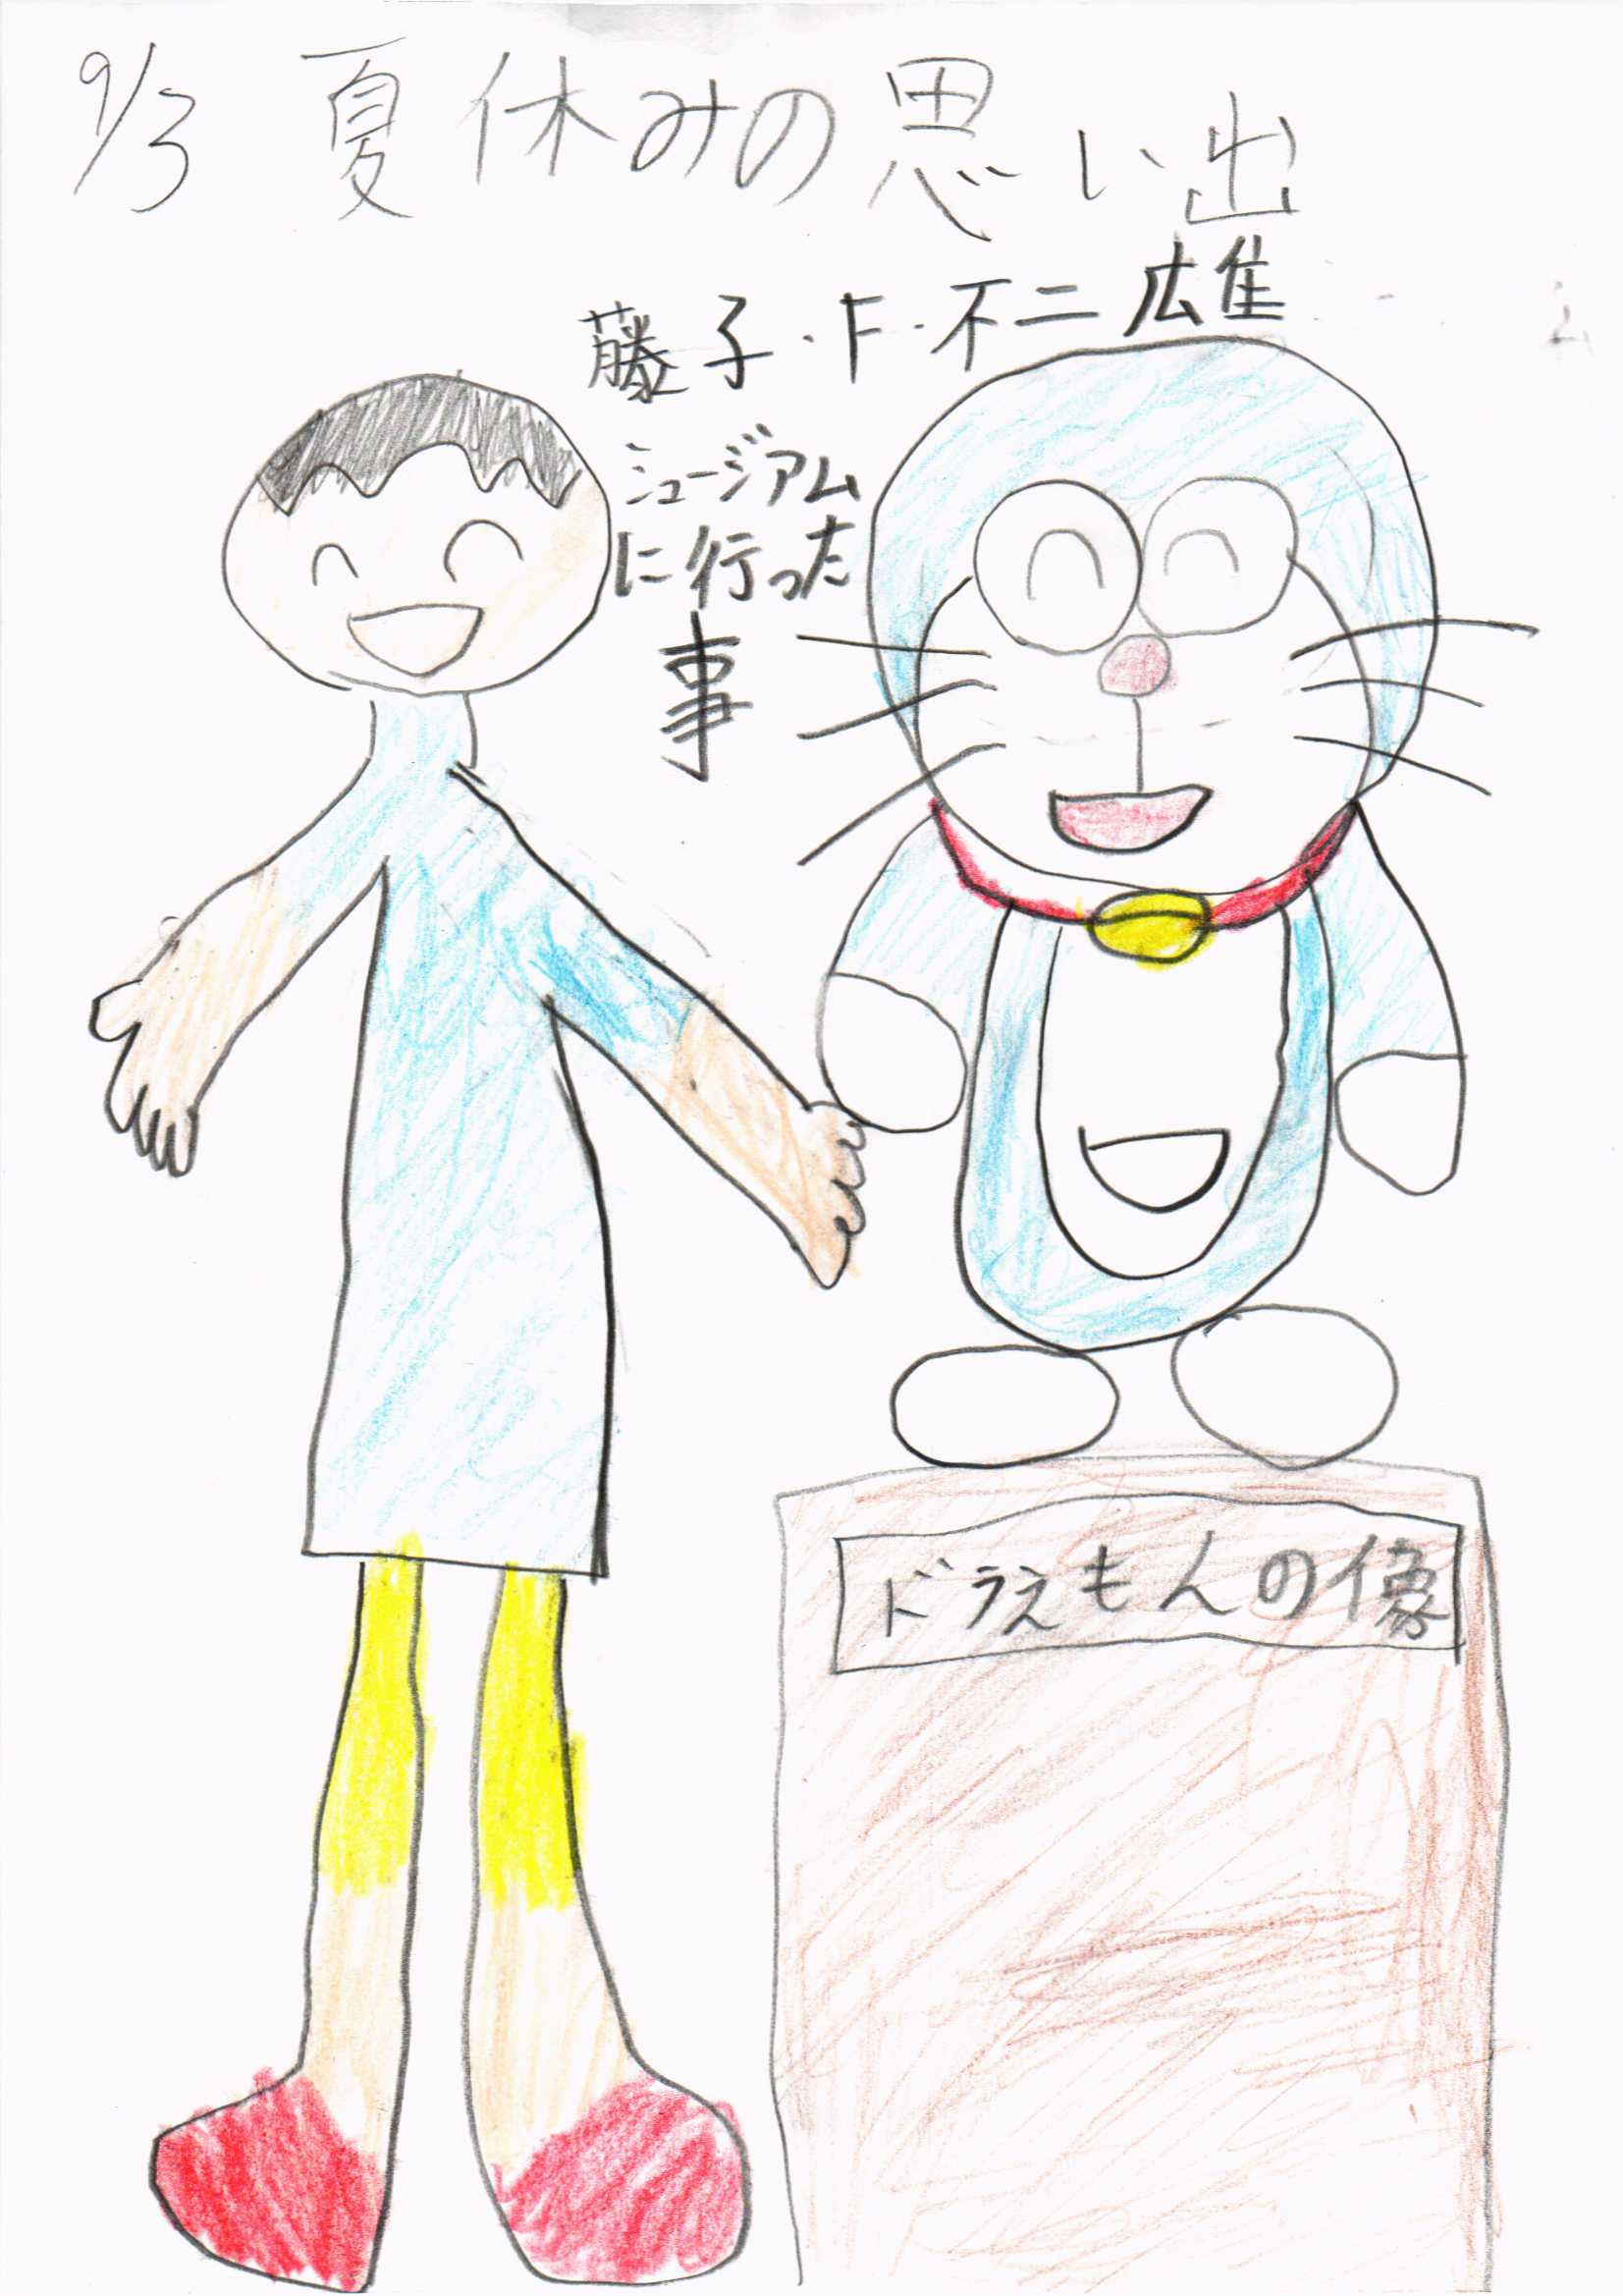 9/3 夏休みの思い出
藤子・F・不二広雄
ミュージアム
に行った
事
ドラえもんの像